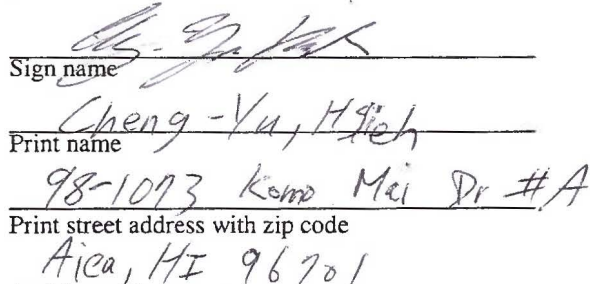 Sign name
Cheng-Yu, Hsieh
Print name
98-1073 Komo Mai Dr #A
Print street address with zip code
Aiea, HI 96701